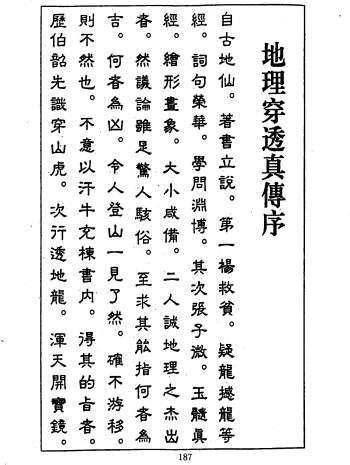 地理穿透真傳序
自古地仙。著書立說。第一楊救貧。疑龍撼龍等
經。詞句榮華。學問淵博。其次張子微。玉髓眞
經。繪形畫象。大小咸備。二人誠地理之杰出
者。然議論雖足驚人駭俗。至求其能指何者為
吉。何者為凶。令人登山一見了然。確不游移。
則不然也。不意以汗牛充棟書内。得其的旨者。
歷伯韶先識穿山虎。次行透地龍。渾天開寶鏡。
187